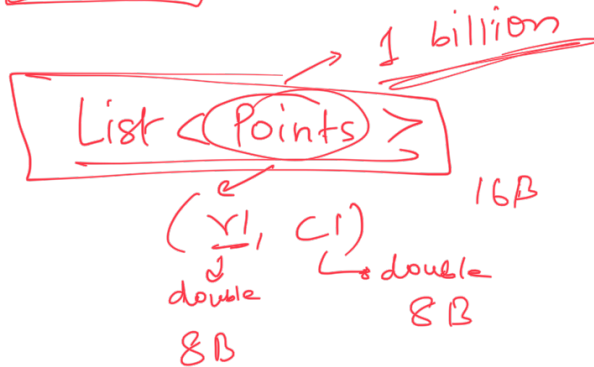 1 billion
List <Points>
16B
(r1, c1)
double double
8B 8B